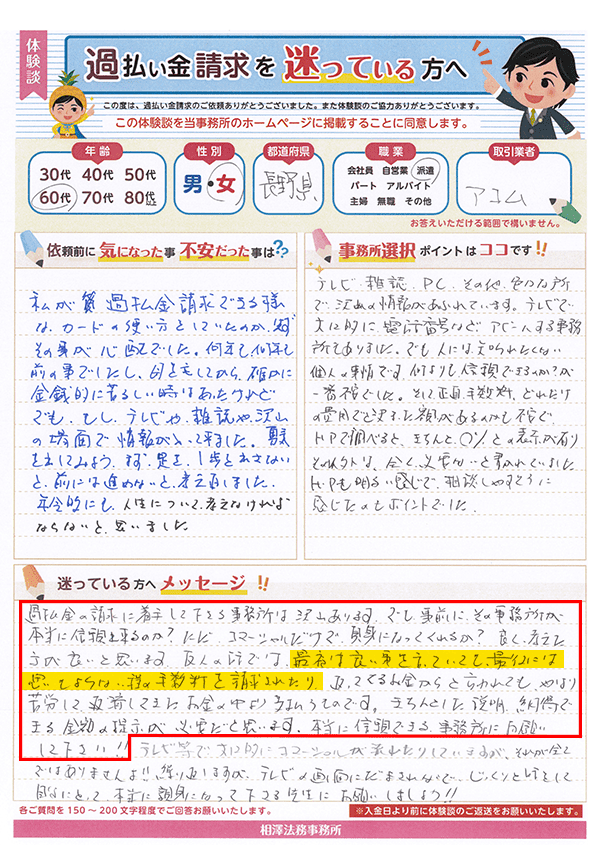 体験談
過払い金請求を迷っている方へ
この度は、過払い金請求のご依頼ありがとうございました。また体験談のご協力ありがとうございます。
この体験談を当事務所のホームページに掲載することに同意します。
年齢
30代 40代 50代
60代 70代 80代
性別
男・女
都道府県
長野県
職業
会社員 自営業 派遣
パート アルバイト
主婦 無職 その他
取引業者
アコム
お答えいただける範囲で構いません。
依頼前に気になった事 不安だった事は??
私が 過払金請求できる様
な、カードの使い方をしていたのか、
その事が心配でした。何年も何年も
前の事でしたし、
金銭的に苦しい時はあったけれど
でも、もし、テレビや、雑誌や、沢山
の場面で情報が
みよう。まず、足を、1歩
と、前には進めないと、考え直しました。
年令的にも、人生について、考えなければ
ならないと、思いました。
事務所選択ポイントはココです!!
テレビ、雑誌、PC、その他、色々な所
で沢山の情報があふれています。テレビで
大々的に、電話番号など、アピールする事務
所もありました。でも、人には知られたくない
個人の事情です。何よりも信頼できるのか?が
一番でした。そして正直、手数料、どれだけ
の費用で
HPで調べると、きちんと、〇%との表示が有り
それ以外は、全く、必要ないと書かれていました。
HPも明るい感じで、相談しやすそうに
感じたのもポイントでした。
迷っている方へメッセージ!!
過払金の請求に着手して下さる事務所は沢山あります。でも事前に、その事務所が
本当に信頼出来るのか?ただ、コマーシャルだけで、親身になってくれるか?良く、考えた
方が良いと思います。友人の話では、最初は良い事を言っていても、最後には
思いもよらない程の手数料を請求されたり、返ってくるお金からと言われても、やはり
苦労して返済してきたお金の中より支払うものです。きちんとした説明、納得で
きる金額の提示が必要だと思います。本当に信頼できる事務所にお願い
して下さい!!テレビ等で大々的にコマーシャルが流れたりしていますが、それが全て
ではありませんよ!!繰り返しますが、テレビの画面にだまされないで、じっくりと話をして
本当に親身になって下さる先生にお願いしましょう!!
各ご質問を150〜200文字程度でご回答お願いいたします。
※入金日より前に体験談のご返送をお願いいたします。
相澤法務事務所